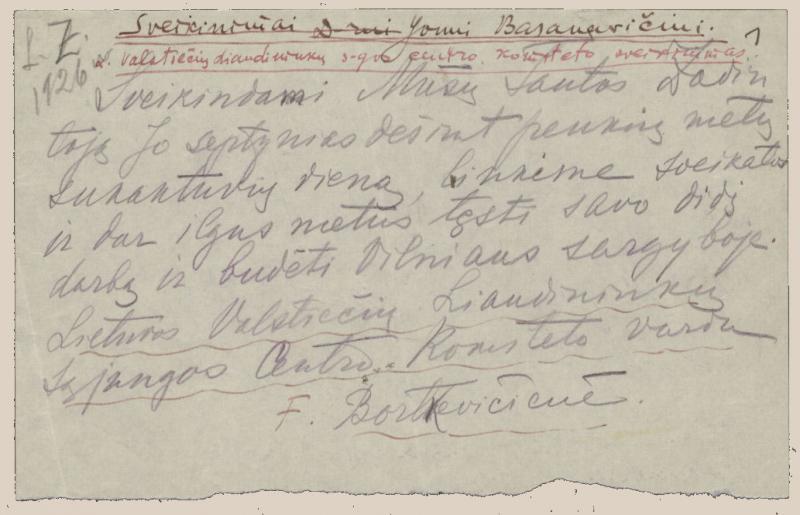 L. Ž.
1926
Sveikinimai D-rui Jonui Basanavičiui.
L. Valstiečių liaudininkų s-gos centro komiteto sveikinimas.
Sveikindami Mūsų Tautos Žadin
toją Jo septynias dešimt penkių metų
sukaktuvių dieną, linkime sveikatos
ir dar ilgus metus tęsti savo didį
darbą ir budėti Vilniaus sargyboje.
Lietuvos Valstiečių Liaudininkų
Sąjungos Centro Komiteto vardu
F. Bortkevičienė.